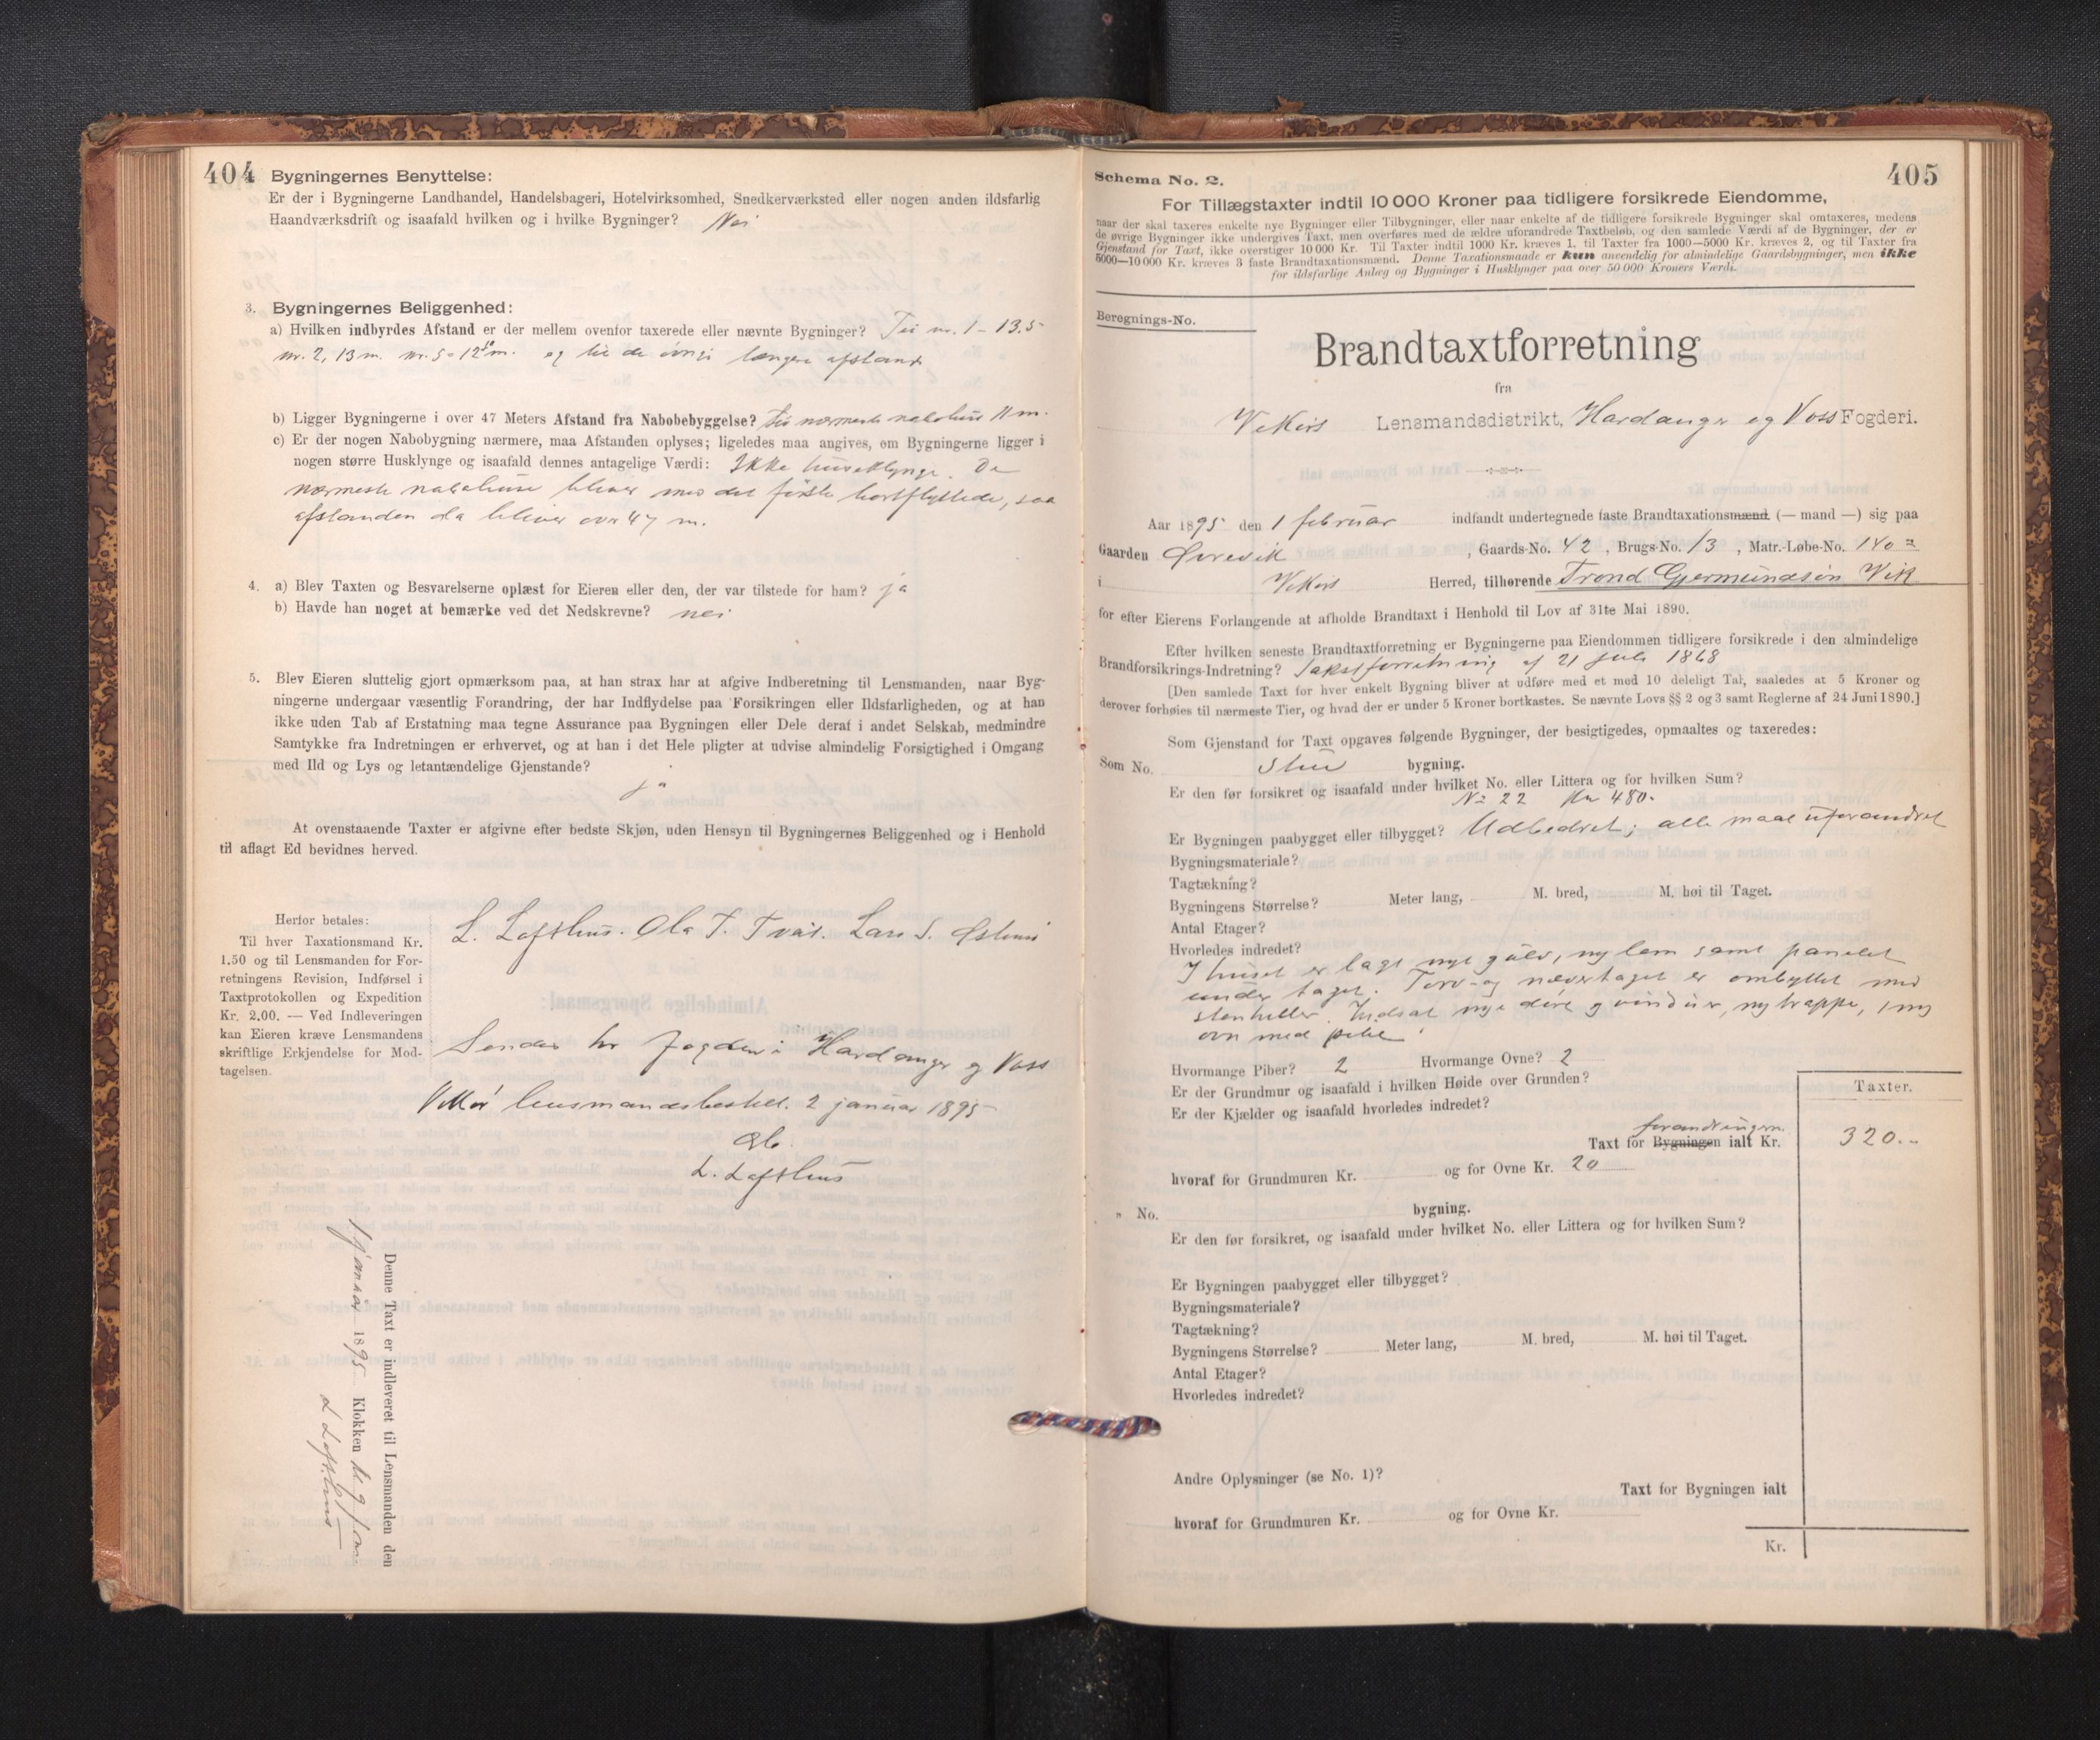 404
Bygningernes Benyttelse:
Er der i Bygningerne Landhandel, Handelsbageri, Hotelvirksomhed, Snedkerværksted eller nogen anden ildsfarlig
Haandværksdrift og isaafald hvilken og i hvilke Bygninger? Nei
3. Bygningernes Beliggenhed:
a) Hvilken indbyrdes Afstand er der mellem ovenfor taxerede eller nævnte Bygninger? Til nr. 1 - 13.5
nr. 2, 13 m. nr. 5 = 12 m. og til de øvrige længere afstand
b) Ligger Bygningerne i over 47 Meters Afstand fra Nabobebyggelse? til nærmeste nabohus 11 m.
c) Er der nogen Nabobygning nærmere, maa Afstanden oplyses; ligeledes maa angives, om Bygningerne ligger i
nogen større Husklynge og isaafald dennes antagelige Værdi: Ikke husklynge. De
nærmeste nabohuse bliver med det første bortflyttede, saa
afstanden da bliver over 47 m.
4. a) Blev Taxten og Besvarelserne oplæst for Eieren eller den, der var tilstede for ham? ja
b) Havde han noget at bemærke ved det Nedskrevne? nei
5. Blev Eieren sluttelig gjort opmærksom paa, at han strax har at afgive Indberetning til Lensmanden, naar Byg-
ningerne undergaar væsentlig Forandring, der har Indflydelse paa Forsikringen eller Ildsfarligheden, og at han
ikke uden Tab af Erstatning maa tegne Assurance paa Bygningen eller Dele deraf i andet Selskab, medmindre
Samtykke fra Indretningen er erhvervet, og at han i det Hele pligter at udvise almindelig Forsigtighed i Omgang
med Ild og Lys og letantændelige Gjenstande?
ja
At ovenstaaende Taxter er afgivne efter bedste Skjøn, uden Hensyn til Bygningernes Beliggenhed og i Henhold
til aflagt Ed bevidnes herved.
Herfor betales:
Til hver Taxationsmand Kr.
1.50 og til Lensmanden for For-
retningens Revision, Indførsel i
Taxtprotokollen og Expedition
Kr. 2.00. — Ved Indleveringen
kan Eieren kræve Lensmandens
skriftlige Erkjendelse for Mod-
tagelsen.
L. Lofthus. Ola T. Lars S.
Sendes hr Fogden i Hardanger og Voss
Vikør lensmandsbestill. 2 januar 1895
L. Lofthus
Denne Taxt er indleveret til Lensmanden den
1 januar 1895 Klokken
L Lofthus
405
Schema No. 2.
For Tillægstaxter indtil 10 000 Kroner paa tidligere forsikrede Eiendomme,
naar der skal taxeres enkelte nye Bygninger eller Tilbygninger, eller naar enkelte af de tidligere forsikrede Bygninger skal omtaxeres, medens
de øvrige Bygninger ikke undergives Taxt, men overføres med de ældre uforandrede Taxtbeløb, og den samlede Værdi af de Bygninger, der er
Gjenstand for Taxt, ikke overstiger 10 000 Kr. Til Taxter indtil 1000 Kr. kræves 1, til Taxter fra 1000—5000 Kr. kræves 2, og til Taxter fra
5000—10 000 Kr. kræves 3 faste Brandtaxationsmænd. Denne Taxationsmaade er kun anvendelig for almindelige Gaardsbygninger, men ikke
for ildsfarlige Anlæg og Bygninger i Husklynger paa over 50 000 Kroners Værdi.
Beregnings-No.
Brandtaxtforretning
fra
Vikørs Lensmandsdistrikt, Hardanger og Voss Fogderi.
Aar 1895 den 1 februar indfandt undertegnede faste Brandtaxationsmænd (— mand —) sig paa
Gaarden Øvrevik, Gaards-No. 42, Brugs-No. 13, Matr.-Løbe-No. 140 a
i Vikørs Herred, tilhørende Trond Gjermundsøn Vik
for efter Eierens Forlangende at afholde Brandtaxt i Henhold til Lov af 31te Mai 1890.
Efter hvilken seneste Brandtaxtforretning er Bygningerne paa Eiendommen tidligere forsikrede i den almindelige
Brandforsikrings-Indretning? Takstforretning af 21 juli 1868
[Den samlede Taxt for hver enkelt Bygning bliver at udføre med et med 10 deleligt Tal, saaledes at 5 Kroner og
derover forhøies til nærmeste Tier, og hvad der er under 5 Kroner bortkastes. Se nævnte Lovs §§ 2 og 3 samt Reglerne af 24 Juni 1890.]
Som Gjenstand for Taxt opgaves følgende Bygninger, der besigtigedes, opmaaltes og taxeredes:
Som No. Stue bygning.
Er den før forsikret og isaafald under hvilket No. eller Littera og for hvilken Sum?
No 22 Kr 480.
Er Bygningen paabygget eller tilbygget? Udbedret; alle maal uforandret
Bygningsmateriale?
Tagtækning?
Bygningens Størrelse? Meter lang, M. bred, M. høi til Taget.
Antal Etager?
Hvorledes indredet?
I huset er lagt nyt gulv, ny lem samt panelet
under taget. Torv- og nævertaget er ombyttet med
stenheller. Indsat nye døre og vinduer, ny trappe, 1 ny
ovn med pibe
Hvormange Piber? 2 Hvormange Ovne? 2
Er der Grundmur og isaafald i hvilken Høide over Grunden?
Er der Kjælder og isaafald hvorledes indredet?
Taxter.
forandringen
Taxt for Bygningen ialt Kr. 320.-
hvoraf for Grundmuren Kr. og for Ovne Kr. 20
" No. bygning.
Er den før forsikret, og isaafald under hvilket No. eller Littera og for hvilken Sum?
Er Bygningen paabygget eller tilbygget?
Bygningsmateriale?
Tagtækning?
Bygningens Størrelse? Meter lang, M. bred, M. høi til Taget.
Antal Etager?
Hvorledes indredet?
Andre Oplysninger (se No. 1)?
Taxt for Bygningen ialt
hvoraf for Grundmuren Kr. og for Ovne Kr.
Kr.